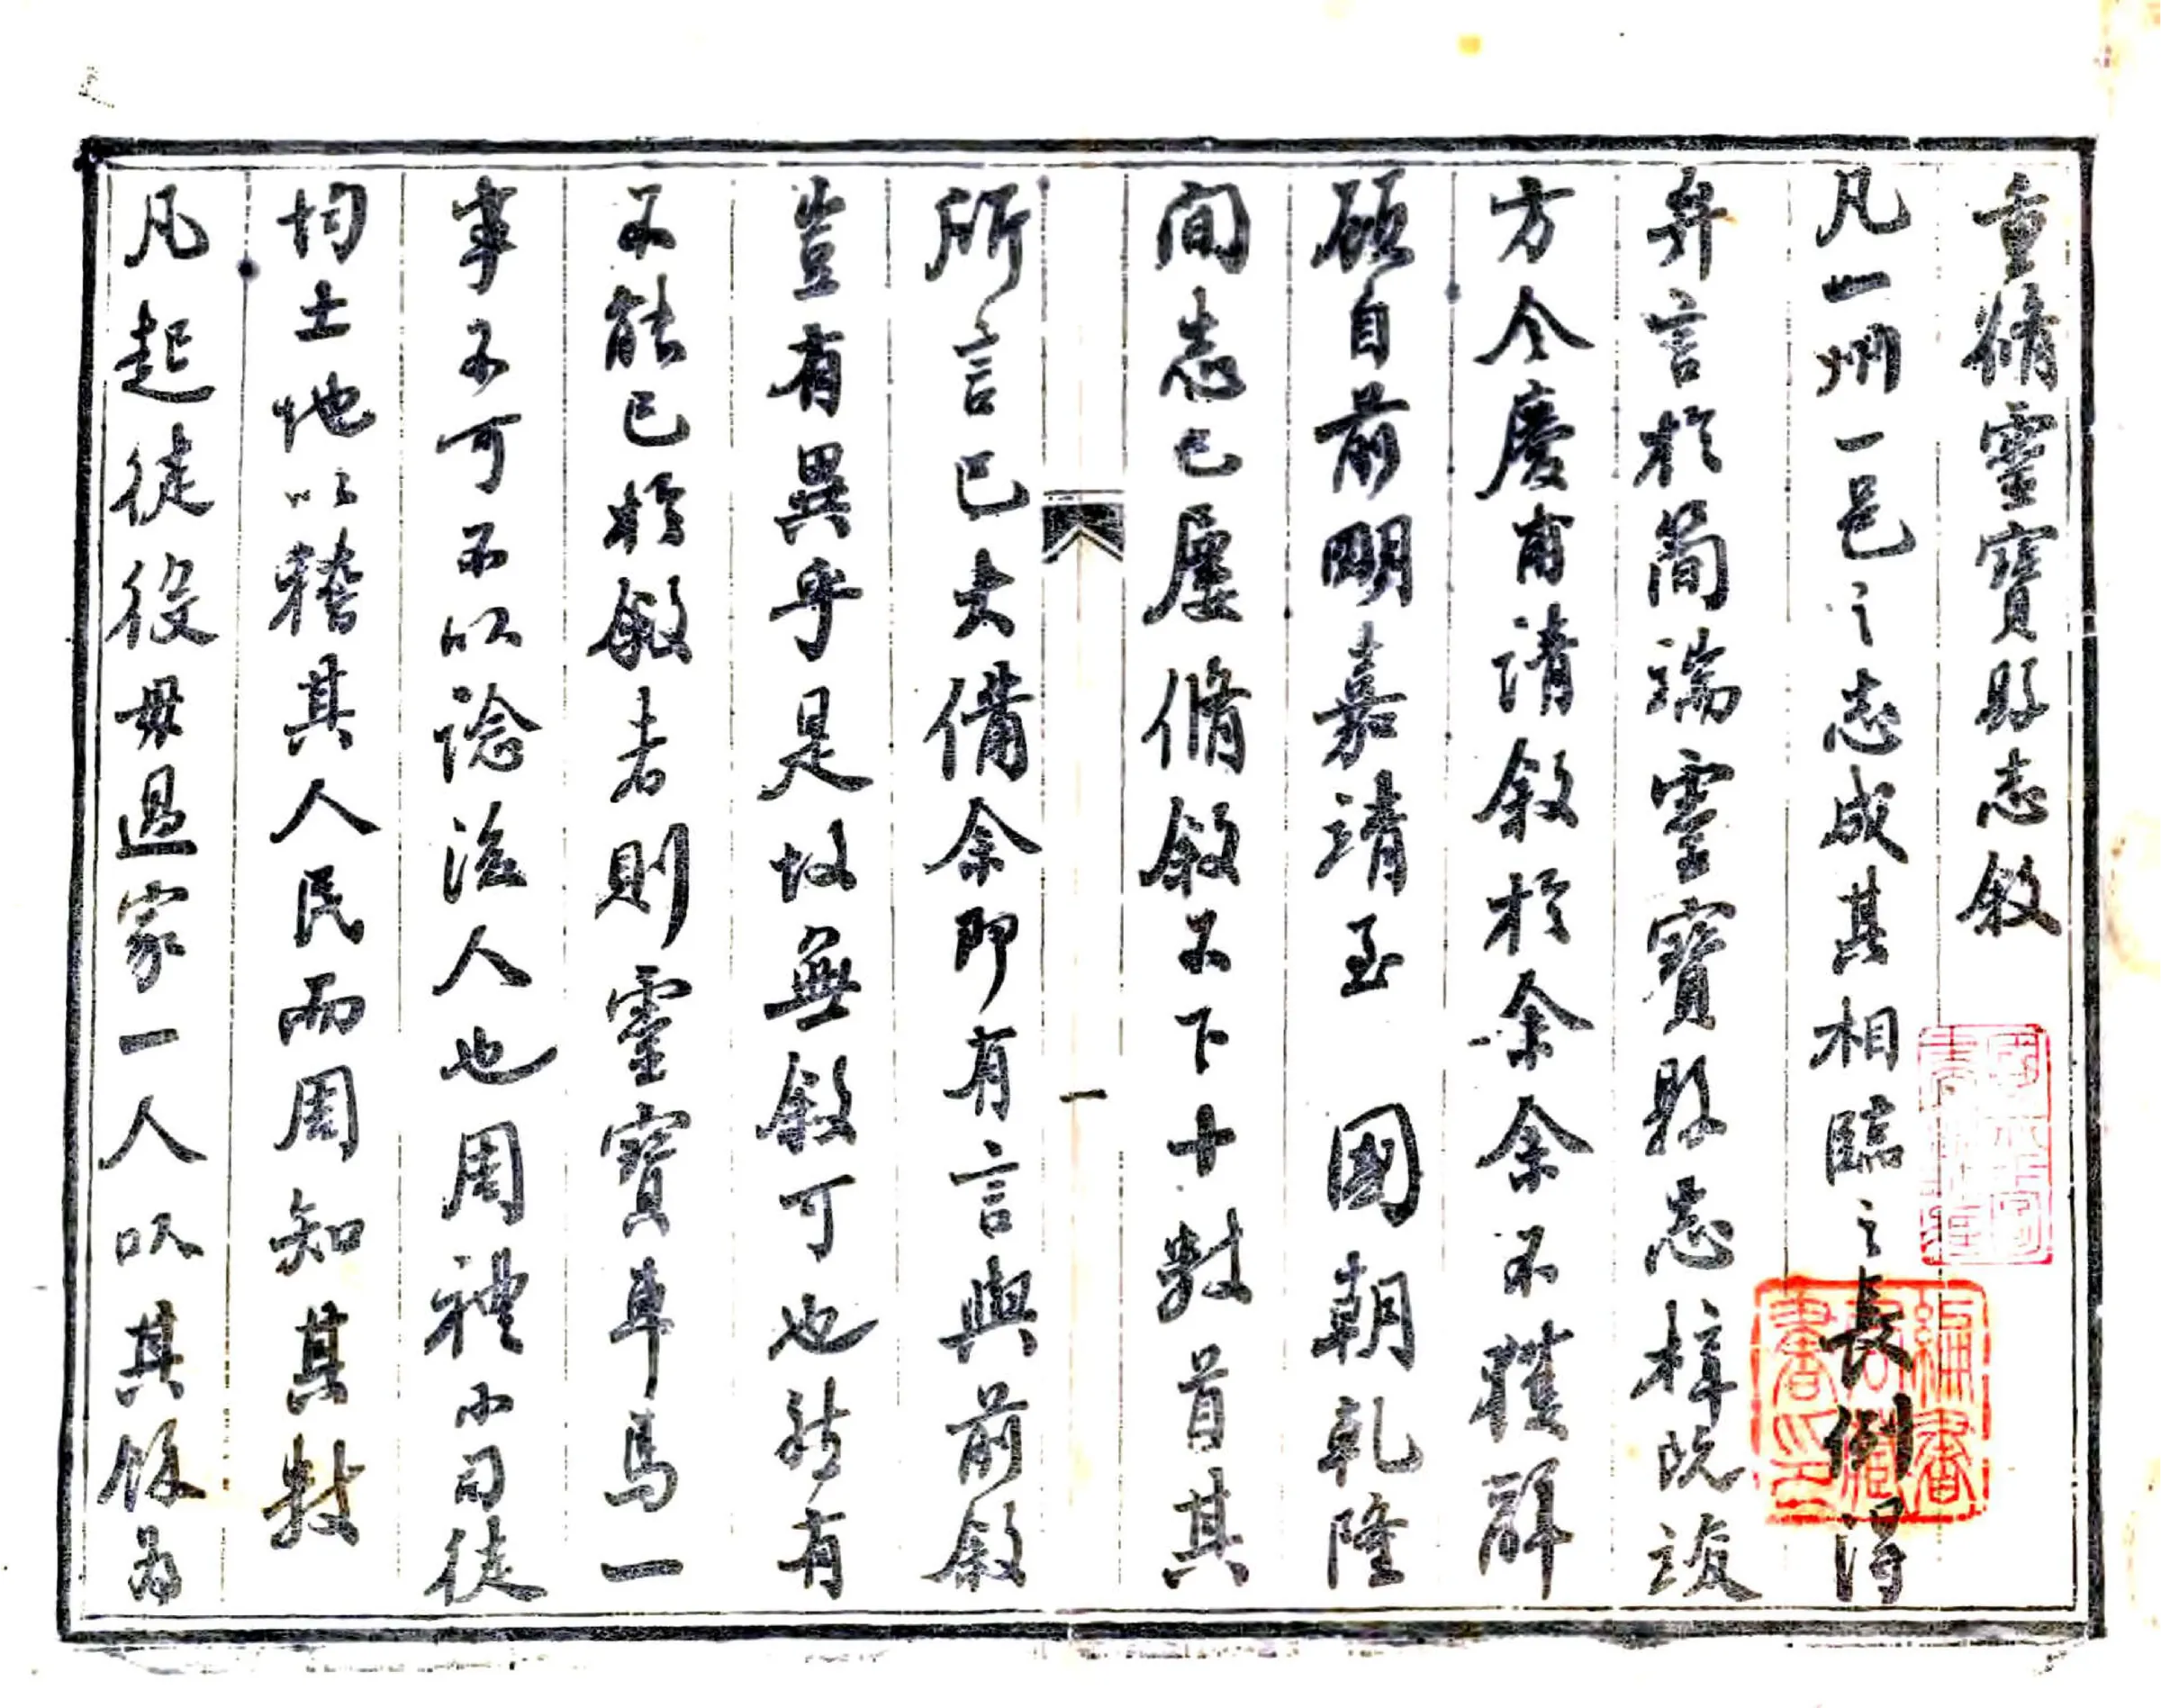 重脩靈寶縣志敘
凡一州一邑之志成其相臨之長例得
弁言於簡端靈寶縣志梓既竣
方令慶甫請敘於余余不獲辭
顧自前明嘉靖至 國朝乾隆
間志已屢脩敘不下十數首其
所言已大備余即有言與前敘
豈有異乎是故無敘可也然有
不能已於敘者則靈寶車馬一
事不可不以諗後人也周禮小司徒
均土地以稽其人民而周知其數
凡起徒役毋過家一人以其餘為
一
編書
書印